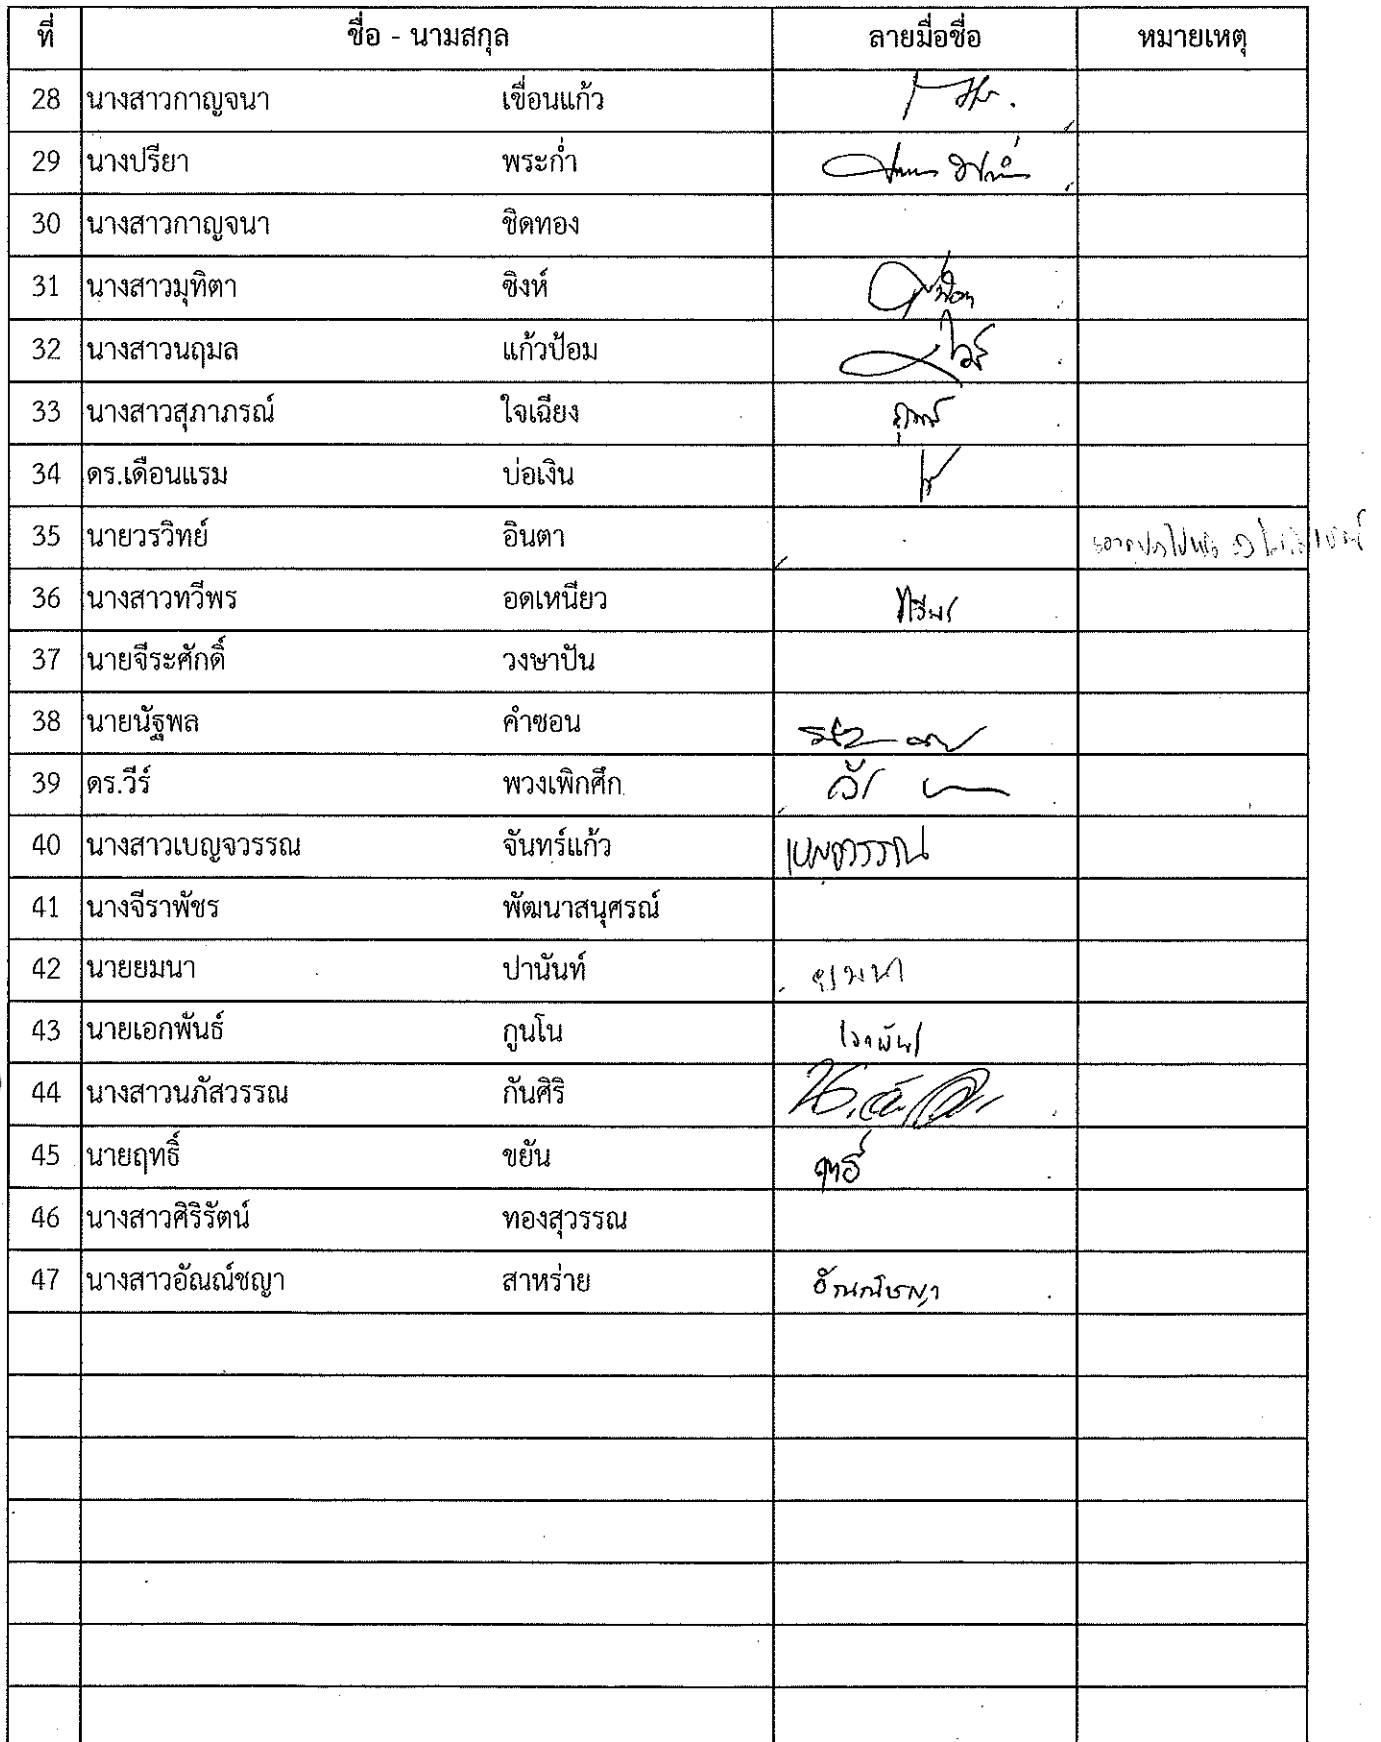 ที่ ชื่อ - นามสกุล ลายมือชื่อ หมายเหตุ
28 นางสาวกาญจนา เขื่อนแก้ว
29 นางปรียา พระก่ำ
30 นางสาวกาญจนา ชิดทอง
31 นางสาวมุทิตา ซิงห์
32 นางสาวนฤมล แก้วป้อม
33 นางสาวสุภาภรณ์ ใจเฉียง
34 ดร.เดือนแรม บ่อเงิน
35 นายวรวิทย์ อินตา
36 นางสาวทวีพร อดเหนียว ทวีพร
37 นายจีระศักดิ์ วงษาปัน
38 นายนัฐพล คำซอน
39 ดร.วีร์ พวงเพิกศึก
40 นางสาวเบญจวรรณ จันทร์แก้ว เบญจวรรณ
41 นางจีราพัชร พัฒนาสนุศรณ์
42 นายยมนา ปานันท์ ยมนา
43 นายเอกพันธ์ กูนโน
44 นางสาวนภัสวรรณ กันศิริ
45 นายฤทธิ์ ขยัน ฤทธิ์
46 นางสาวศิริรัตน์ ทองสุวรรณ
47 นางสาวอัณณ์ชญา สาหร่าย อัณณ์ชญา